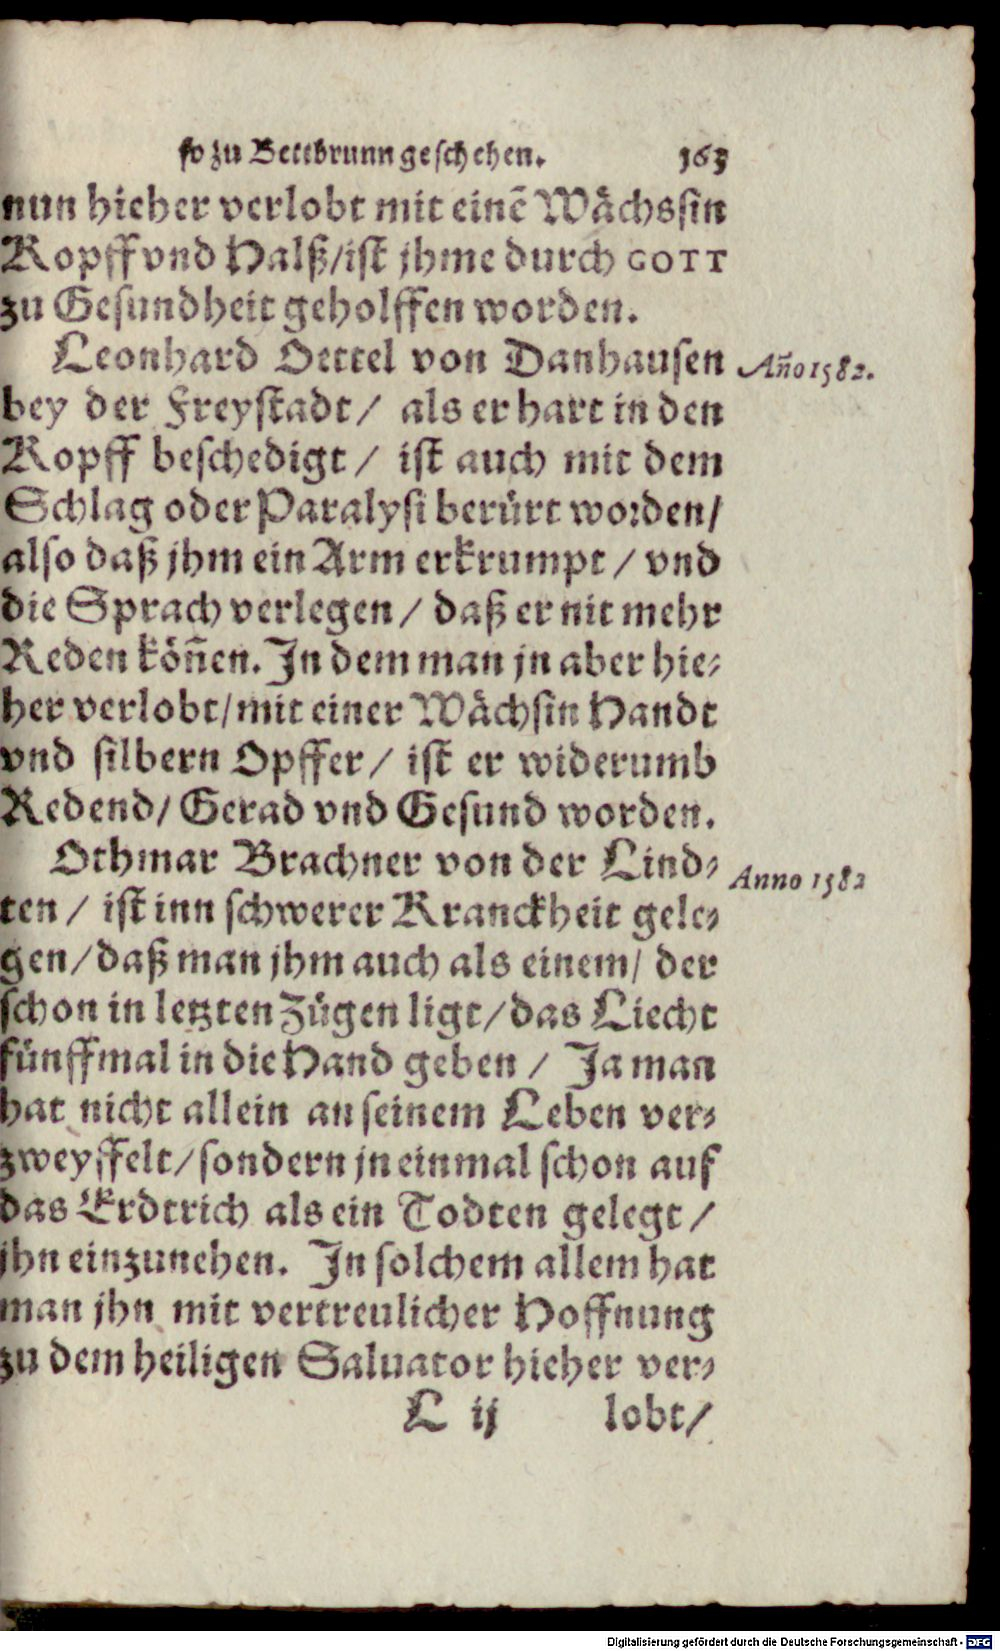 so zu Bettbrunn geschehen. 163
nun hieher verlobt mit einẽ Wächssin
Kopff vnd Halß/ist jhme durch GOTT
zu Gesundheit geholffen worden.
Leonhard Oettel von Danhausen Año 1582.
bey der Freystadt/ als er hart in den
Kopff beschedigt/ ist auch mit dem
Schlag oder Paralysi berürt worden/
also daß jhm ein Arm erkrumpt/ vnd
die Sprach verlegen/ daß er nit mehr
Reden köñen. In dem man jn aber hie-
her verlobt/mit einer Wächsin Handt
vnd silbern Opffer/ ist er widerumb
Redend/ Gerad vnd Gesund worden.
Othmar Brachner von der Lind- Anno 1582
ten/ ist inn schwerer Kranckheit gele-
gen/daß man jhm auch als einem/ der
schon in letzten Zügen ligt/das Liecht
fünffmal in die Hand geben/ Ja man
hat nicht allein an seinem Leben ver-
zweyffelt/sondern jn einmal schon auf
das Erdtrich als ein Todten gelegt/
jhn einzunehen. In solchem allem hat
man jhn mit vertreulicher Hoffnung
zu dem heiligen Saluator hieher ver-
L ij lobt/
Digitalisierung gefördert durch die Deutsche Forschungsgemeinschaft - DFG